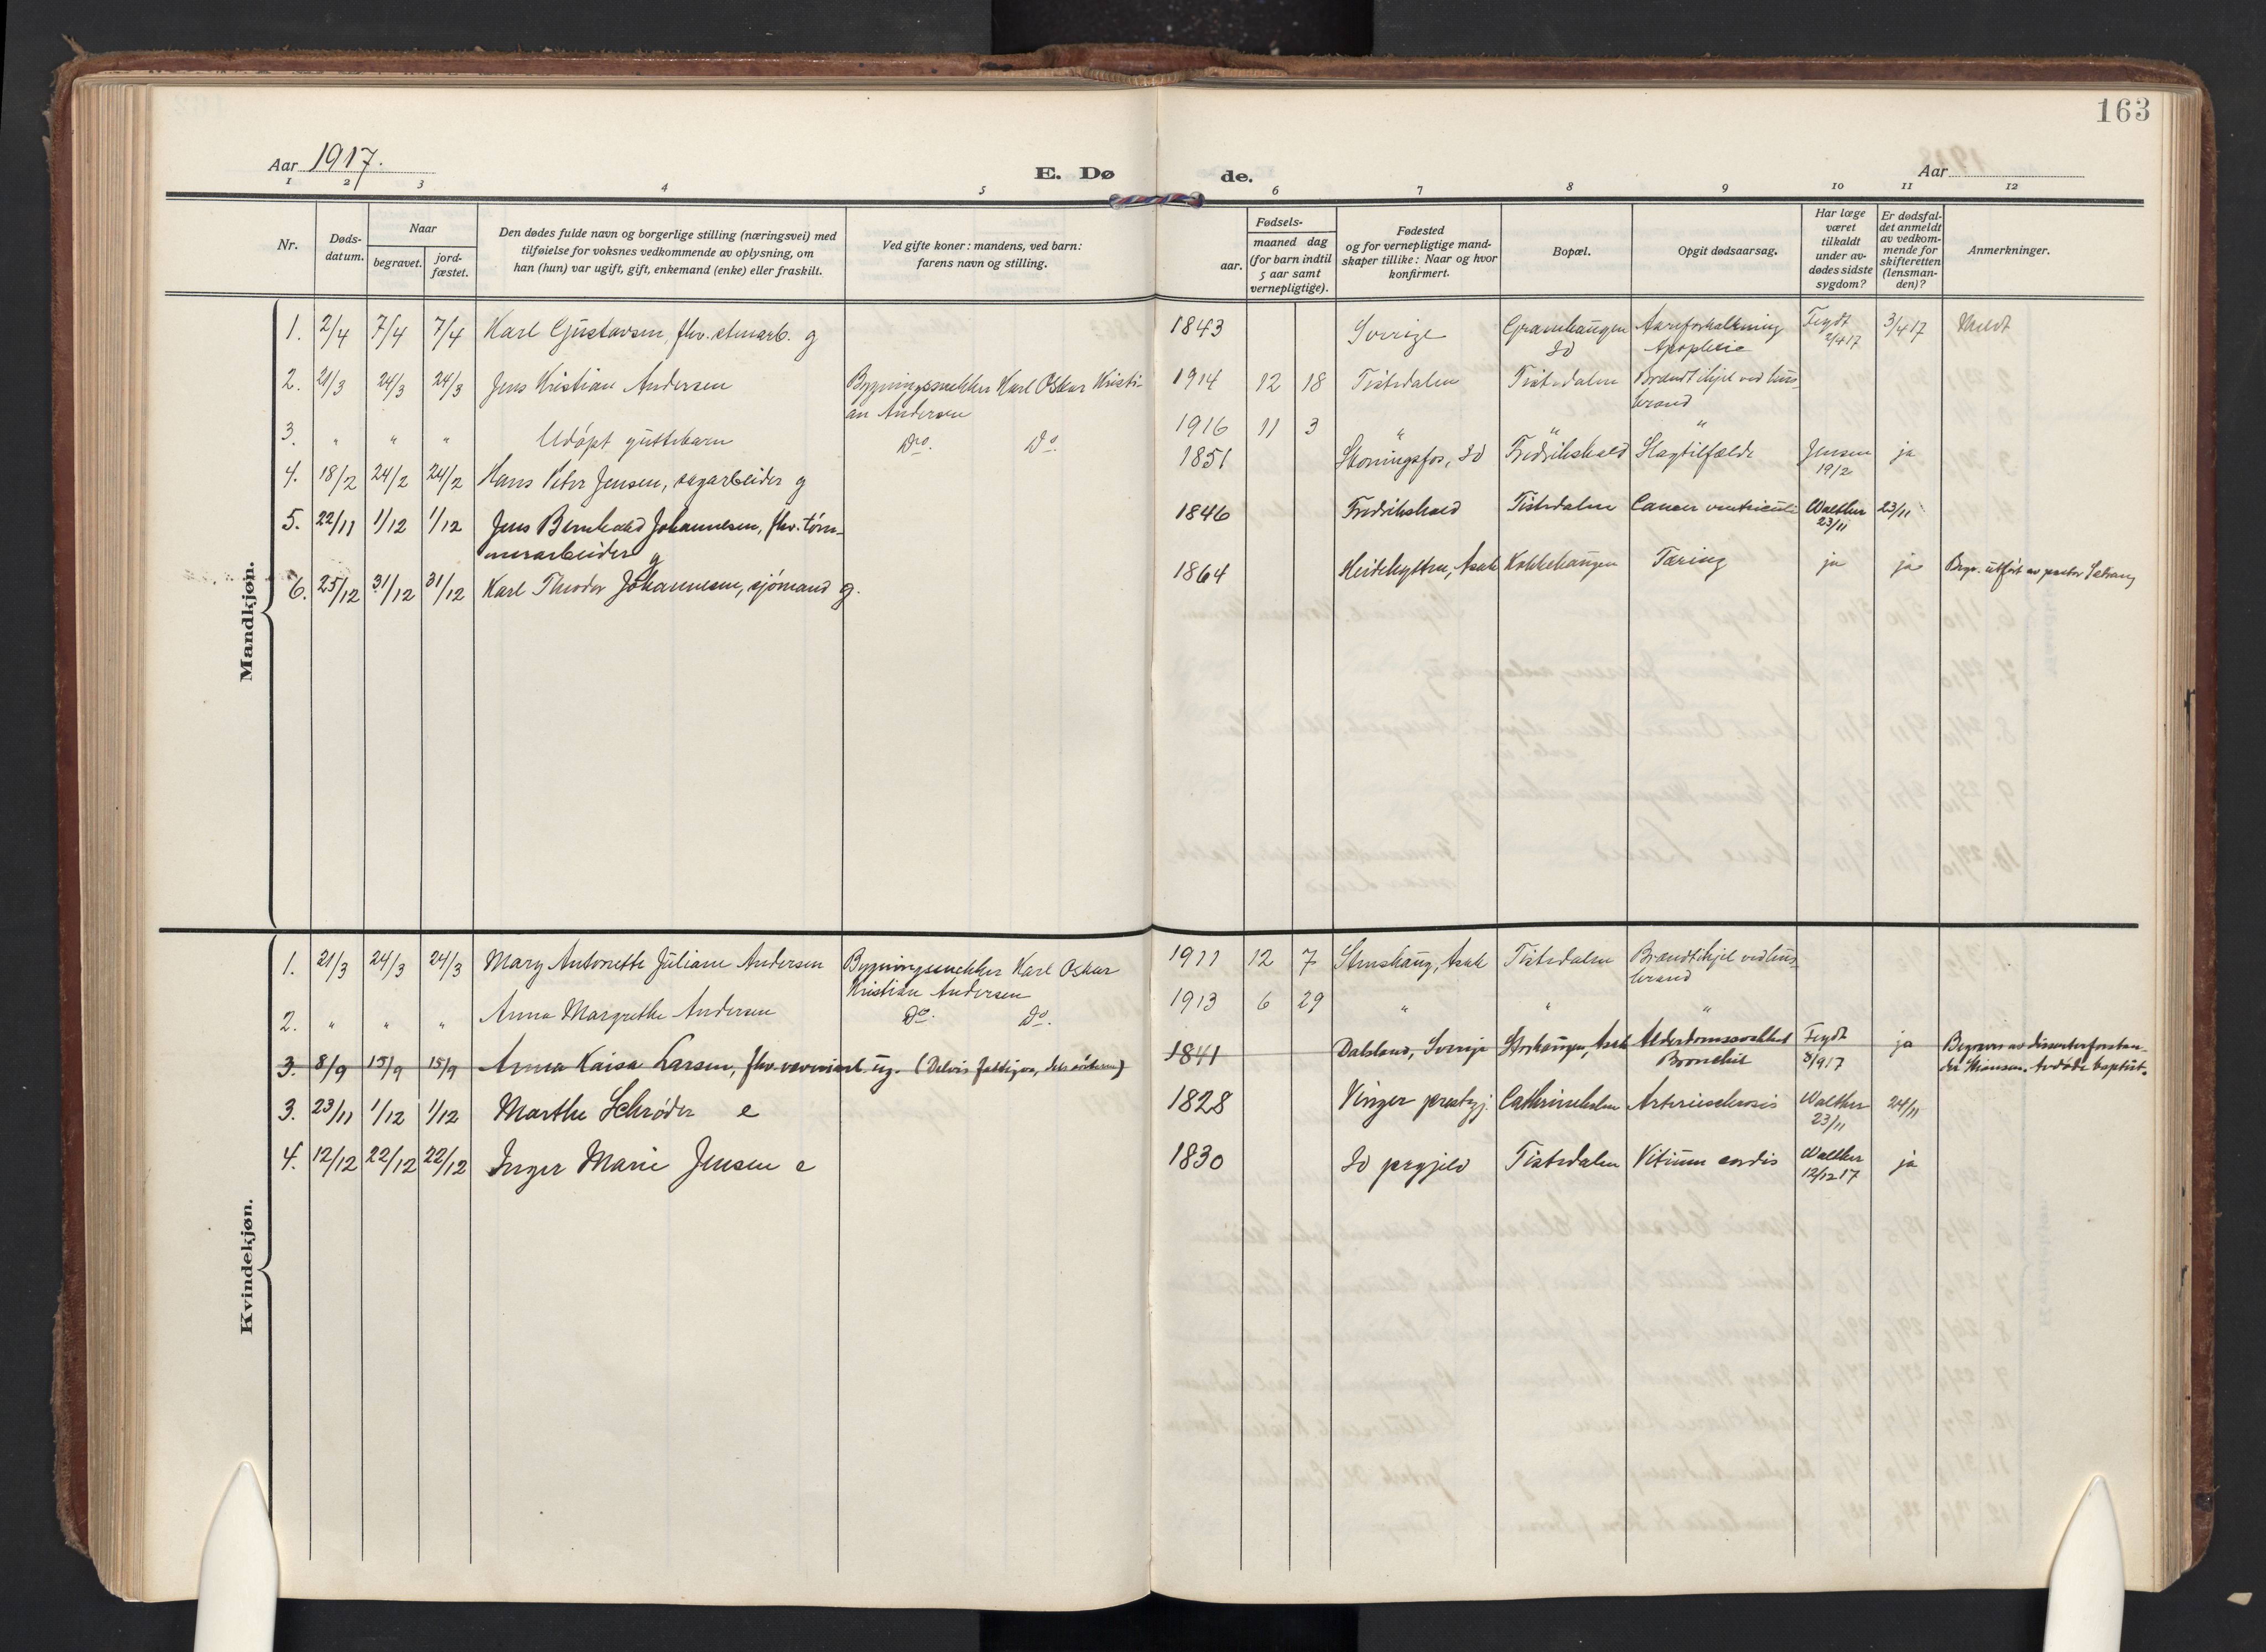 163
Aar 1917.
E. Døde.
Aar
1 2 3 4 5 6 7 8 9 10 11 12
Nr.
Døds-
datum.
Naar
begravet.
jord-
fæstet.
Den dødes fulde navn og borgerlige stilling (næringsvei) med
tilføielse for voksnes vedkommende av oplysning, om
han (hun) var ugift, gift, enkemand (enke) eller fraskilt.
Ved gifte koner: mandens, ved barn:
farens navn og stilling.
Fødsels-
aar.
maaned dag
(for barn indtil
5 aar samt
vernepligtige).
Fødested
og for vernepligtige mand-
skaper tillike: Naar og hvor
konfirmert.
Bopæl.
Opgit dødsaarsag.
Har læge
været
tilkaldt
under av-
dødes sidste
sygdom?
Er dødsfal-
det anmeldt
av vedkom-
mende for
skifteretten
(lensman-
den)?
Anmerkninger.
Mandkjøn.
1. 2/4 7/4 7/4 Karl Gustavsen, fhv. stenarb. g 1843 Sverige Granhaugen Aareforkalkning Feydt 3/4 17
Id Apoplexie 2/4 17
2. 21/3 24/3 24/3 Jens Kristian Andersen Bygningssnekker Karl Oskar Kristi- 1914 12 18 Tistedalen Tistedalen Brændt ihjel ved hus-
an Andersen brand
3. " " " Udøpt guttebarn Do. Do. 1916 11 3 " " "
4. 18/2 24/2 24/2 Hans Peter Jensen, sagarbeider g 1851 Skoningsfos, Id Fredrikshald Slagtilfælde Jensen ja
19/2
5. 22/11 1/12 1/12 Jens Bernhard Johannesen, fhv. tøm- 1846 Fredrikshald Tistedalen Cancer ventriculi Walther 23/11
merarbeider g 23/11
6. 25/12 31/12 31/12 Karl Theodor Johannesen, sjømand g. 1864 Heidehytten, Asak Kokkehaugen Tæring ja ja Begr. utført av pastor
Kvindekjøn.
1. 21/3 24/3 24/3 Mary Antonette Juliane Andersen Bygningssnekker Karl Oskar 1911 12 7 Stenshaug, Asak Tistedalen Brændt ihjel ved hus-
Kristian Andersen brand
2. " " " Anna Margrethe Andersen Do. Do. 1913 6 29 " " "
3. 8/9 15/9 15/9 Anna Kaisa Larsen, fhv. væveriarb. ug. (Delvis fattigva, dels 1841 Dalsland, Sverige Storhaugen, Asak Alderdomssvakhet Feydt ja Begraves av dissenterforstan-
Bronchit 8/9 17 der Hansen. Avdøde baptist.
3. 23/11 1/12 1/12 Marthe Schrøder e 1828 Vinger prestegj. Cathrineholm Arteriesclerosis Walther 24/11
23/11
4. 12/12 22/12 22/12 Inger Marie Jensen e 1830 Id prgjeld Tistedalen Vitium cordis Walther ja
12/12 17